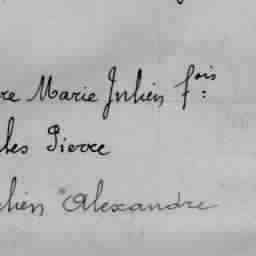 re Marie Julien f.ois:
les Pierre
lien Alexandre